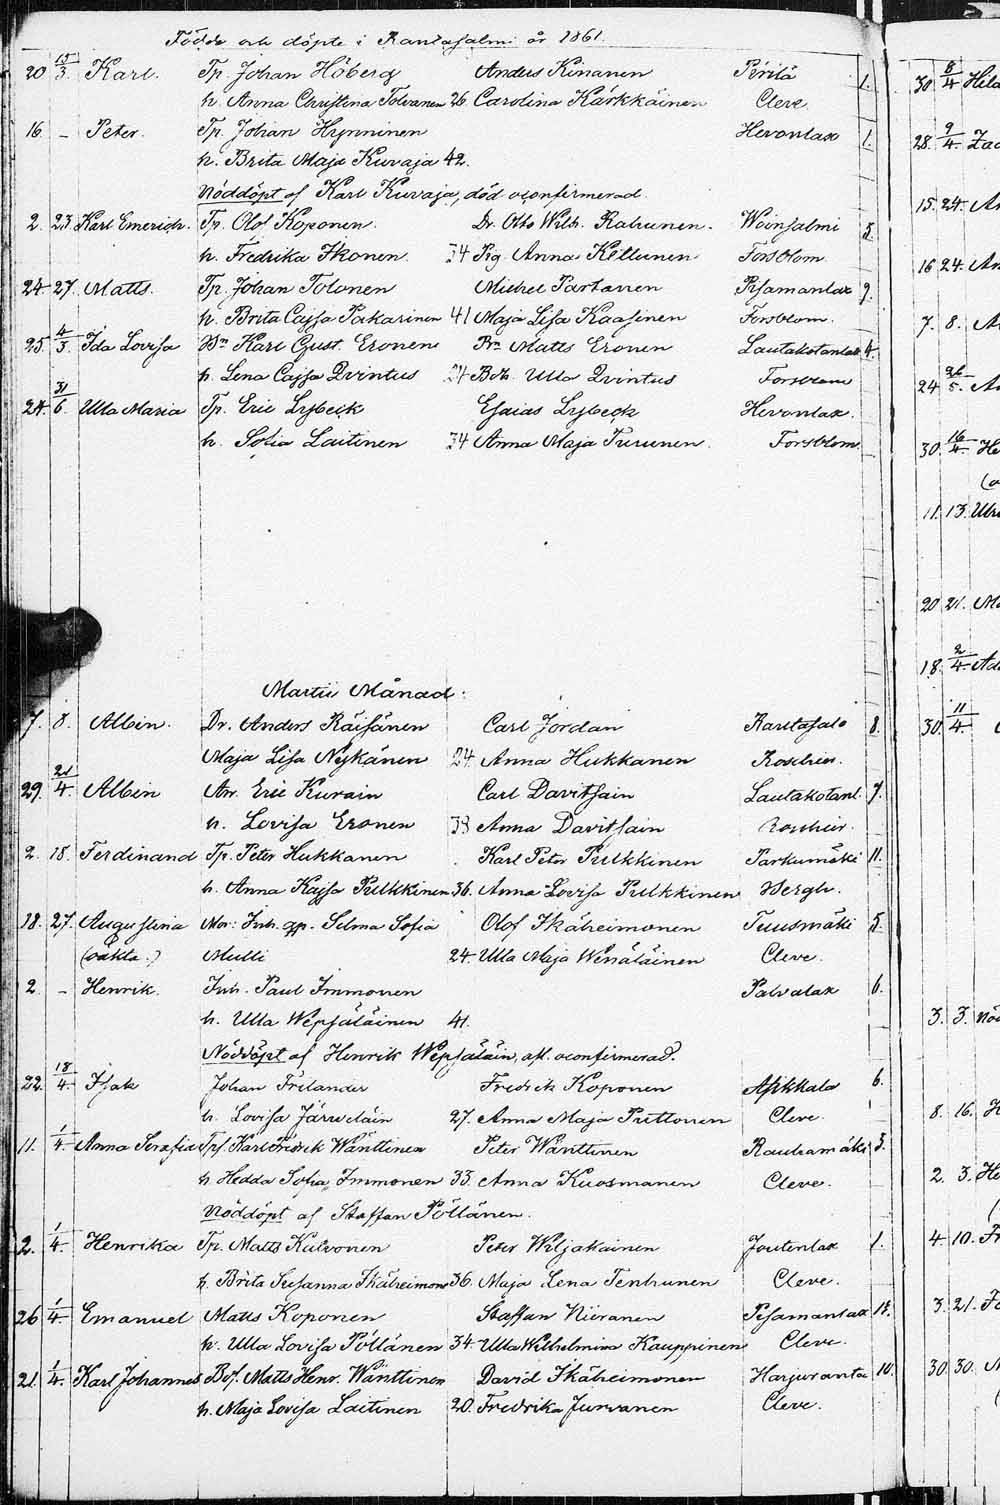 Födde och döpte i Rantasalmi år 1861.
20 15/3. Karl. Tp. Johan Höberg Anders Kinanen Pirilä 1.
h. Anna Christina Tolvanen 26 Carolina Kärkkäinen Cleve.
16 – Peter. Tp. Johan Hynninen Hevonlax 1.
h. Brita Maja Kuvaja 42.
Nöddöpt af Karl Kuvaja, död oconfirmerad.
2. 23. Karl Emerich. Tp. Olof Koponen. Dr. Otto Wilh. Rahunen. Woinsalmi 5.
h. Fredrika Ikonen. 34 Pig. Anna Kettunen Forsblom.
24 27. Matts. Tp. Johan Tolonen Michel Partanen Pisamanlax 9.
h. Brita Cajsa Pakarinen 41 Maja Lisa Kaasinen Forsblom.
25. 4/3. Ida Lovisa Dn Karl Gust. Eronen Bn Matts Eronen Lautakotanlax 4.
h. Lena Cajsa Qvintus 24 Bdr. Ulla Qvintus Forsblom
24 31/6. Ulla Maria Tp. Eric Lybeck Esaias Lybeck Hevonlax.
h. Sofia Laitinen 34 Anna Maja Turunen. Forsblom.
Martii Månad:
7. 8. Albin. Dr. Anders Räisänen Carl Jordan Rantasalo 8.
Maja Lisa Nykänen 24. Anna Hukkanen Roschier.
29. 21/4. Albin Arr. Eric Kurain Carl Davitsain Lautakotanl. 7.
h. Lovisa Eronen 33 Anna Davitsain Roschier.
2. 18. Ferdinand Tp. Peter Hukkanen Karl Peter Pulkkinen Parkumäki 11.
h. Anna Kajsa Pulkkinen 36. Anna Lovisa Pulkkinen Bergh.
18. 27. Augustina Mor: Inh. qp. Selma Sofia Olof Ikäheimonen Tuusmäki 5.
(oäkta.) Mulli 24. Ulla Maja Wenäläinen Cleve.
2 – Henrik. Inh. Paul Immonen Palvalax 6.
h. Ulla Wepsäläinen 41.
Nöddöpt af Henrik Wepsäläin, afl. oconfirmerad.
22. 18/4. Isak Johan Frilander Fredrik Koponen Asikkala 6.
h. Lovisa Järveläin 27. Anna Maja Puttonen Cleve.
11. 1/4. Anna Serafia Tpf. Karl Fredrik Wänttinen Peter Wänttinen Rauhamäki 3.
h Hedda Sofia Immonen 33. Anna Kuosmanen Cleve.
Nöddöpt af Staffan Pöllänen.
2. 1/4. Henrika Tp. Matts Kulvonen Peter Wiljakainen Joutenlax 1.
h. Brita Susanna Ikäheimonen 36. Maja Lena Tenhunen Cleve.
26 1/4. Emanuel Matts Koponen Staffan Niiranen Pisamanlax 14.
h. Ulla Lovisa Pöllänen 34. Ulla Wilhelmina Kauppinen Cleve.
21. 1/4. Karl Johannes Bof. Matts Henr. Wänttinen David Ikäheimonen Harjuranta 10.
h. Maja Lovisa Laitinen 20. Fredrika Jurvanen Cleve.
30 8/4
28. 9/4.
15. 24.
16 24.
7. 8.
24 26/5.
30. 16/4.
11. 13.
20 21.
18. 2/4.
30. 11/4.
3. 3.
8. 16.
2. 3.
4. 10.
3. 21.
30. 30.